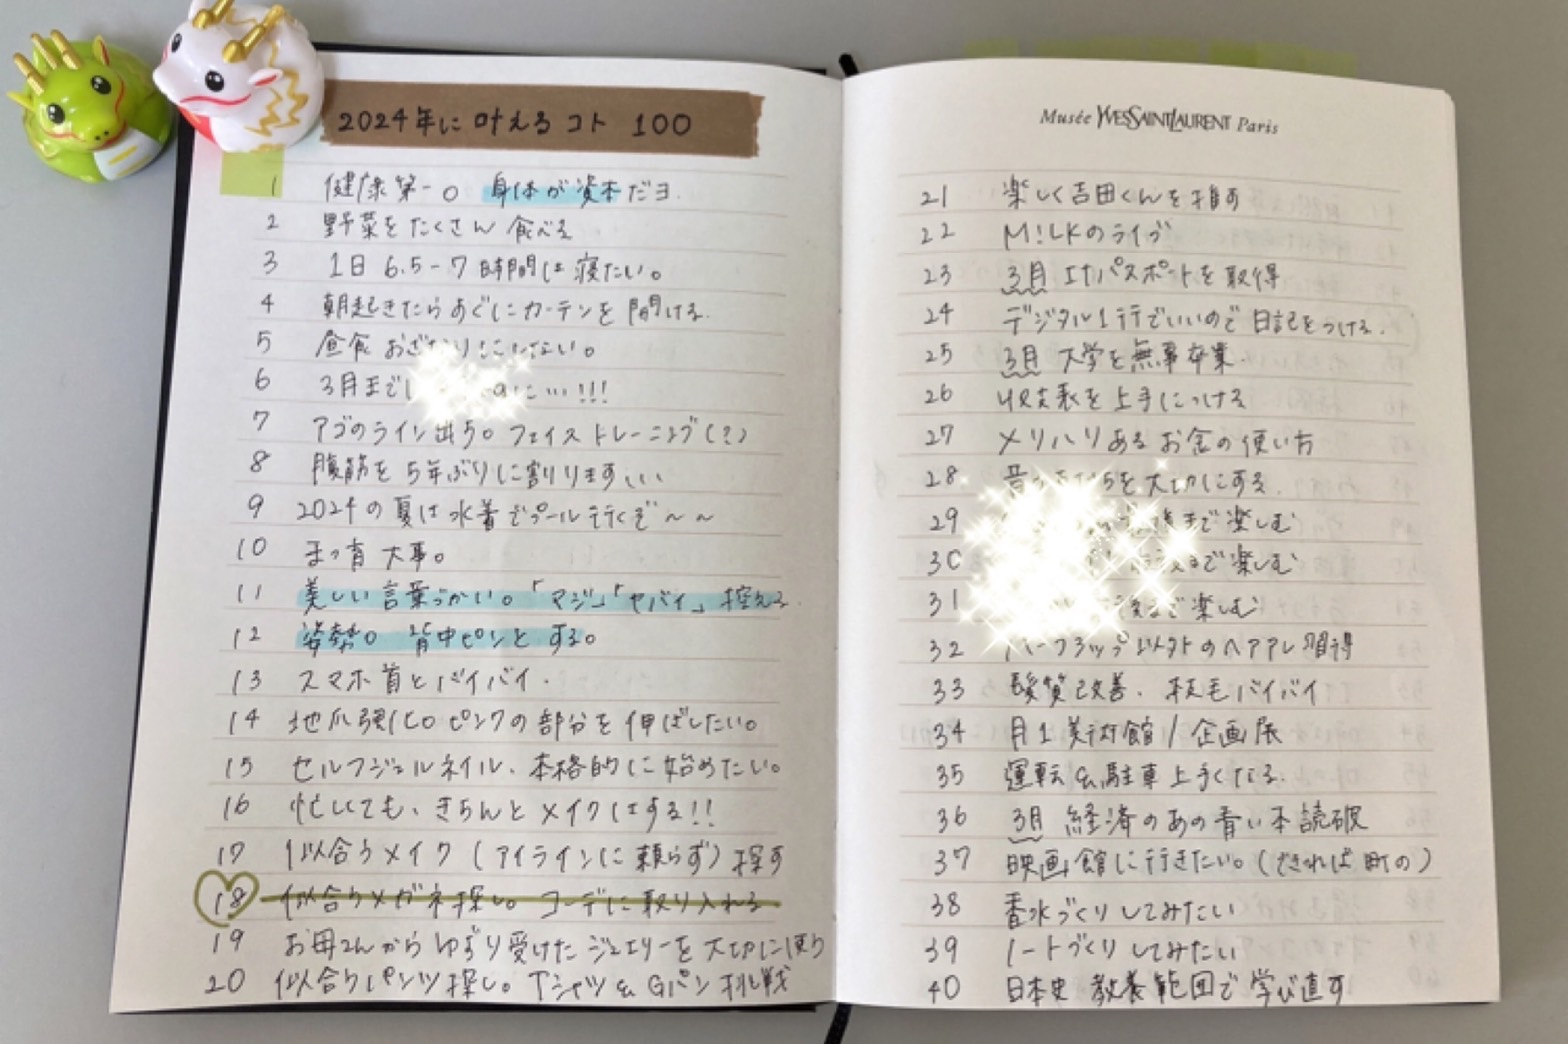 2024年に叶えるコト 100
1 健康第一。身体が資本だヨ.
2 野菜をたくさん食べる
3 1日 6.5-7時間は寝たい。
4 朝起きたらすぐにカーテンを開ける.
5 昼食おざなりにしない。
6 3月まで に…!!!
7 アゴのライン出す。フェイストレーニング(?)
8 腹筋を5年ぶりに割ります
9 2024の夏は水着でプール行くぞ～～
10 まつ育大事。
11 美しい言葉づかい。「マジ」「ヤバイ」控える.
12 姿勢。背中ピンとする。
13 スマホ首とバイバイ.
14 地爪強化。ピンクの部分を伸ばしたい。
15 セルフジェルネイル、本格的に始めたい。
16 忙しくても、きちんとメイクはする!!
17 似合うメイク(アイラインに頼らず)探す
18 似合うメガネ探し。コーデに取り入れる
19 お母さんからゆずり受けたジュエリーを大切に使う
20 似合うパンツ探し。Tシャツ&Gパン挑戦
Musée YVESSAINTLAURENT Paris
21 楽しく吉田くんを推す
22 M!LKのライブ
23 3月 ITパスポートを取得
24 デジタル1行でいいので日記をつける.
25 3月 大学を無事卒業.
26 収支表を上手につける
27 メリハリあるお金の使い方
28 を大切にする.
29 まで楽しむ
30 まで楽しむ
31 まで楽しむ
32 ハーフアップ以外のヘアアレ習得
33 髪質改善. 枝毛バイバイ
34 月1美術館/企画展
35 運転&駐車上手くなる.
36 3月 経済のあの青い本読破
37 映画館に行きたい。(できれば町の)
38 香水づくりしてみたい
39 ノートづくりしてみたい
40 日本史 教養範囲で学び直す